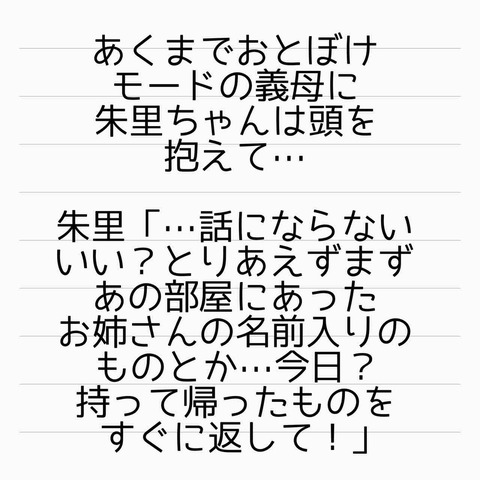 あくまでおとぼけ
モードの義母に
朱里ちゃんは頭を
抱えて…
朱里「…話にならない
いい？とりあえずまず
あの部屋にあった
お姉さんの名前入りの
ものとか…今日？
持って帰ったものを
すぐに返して！」